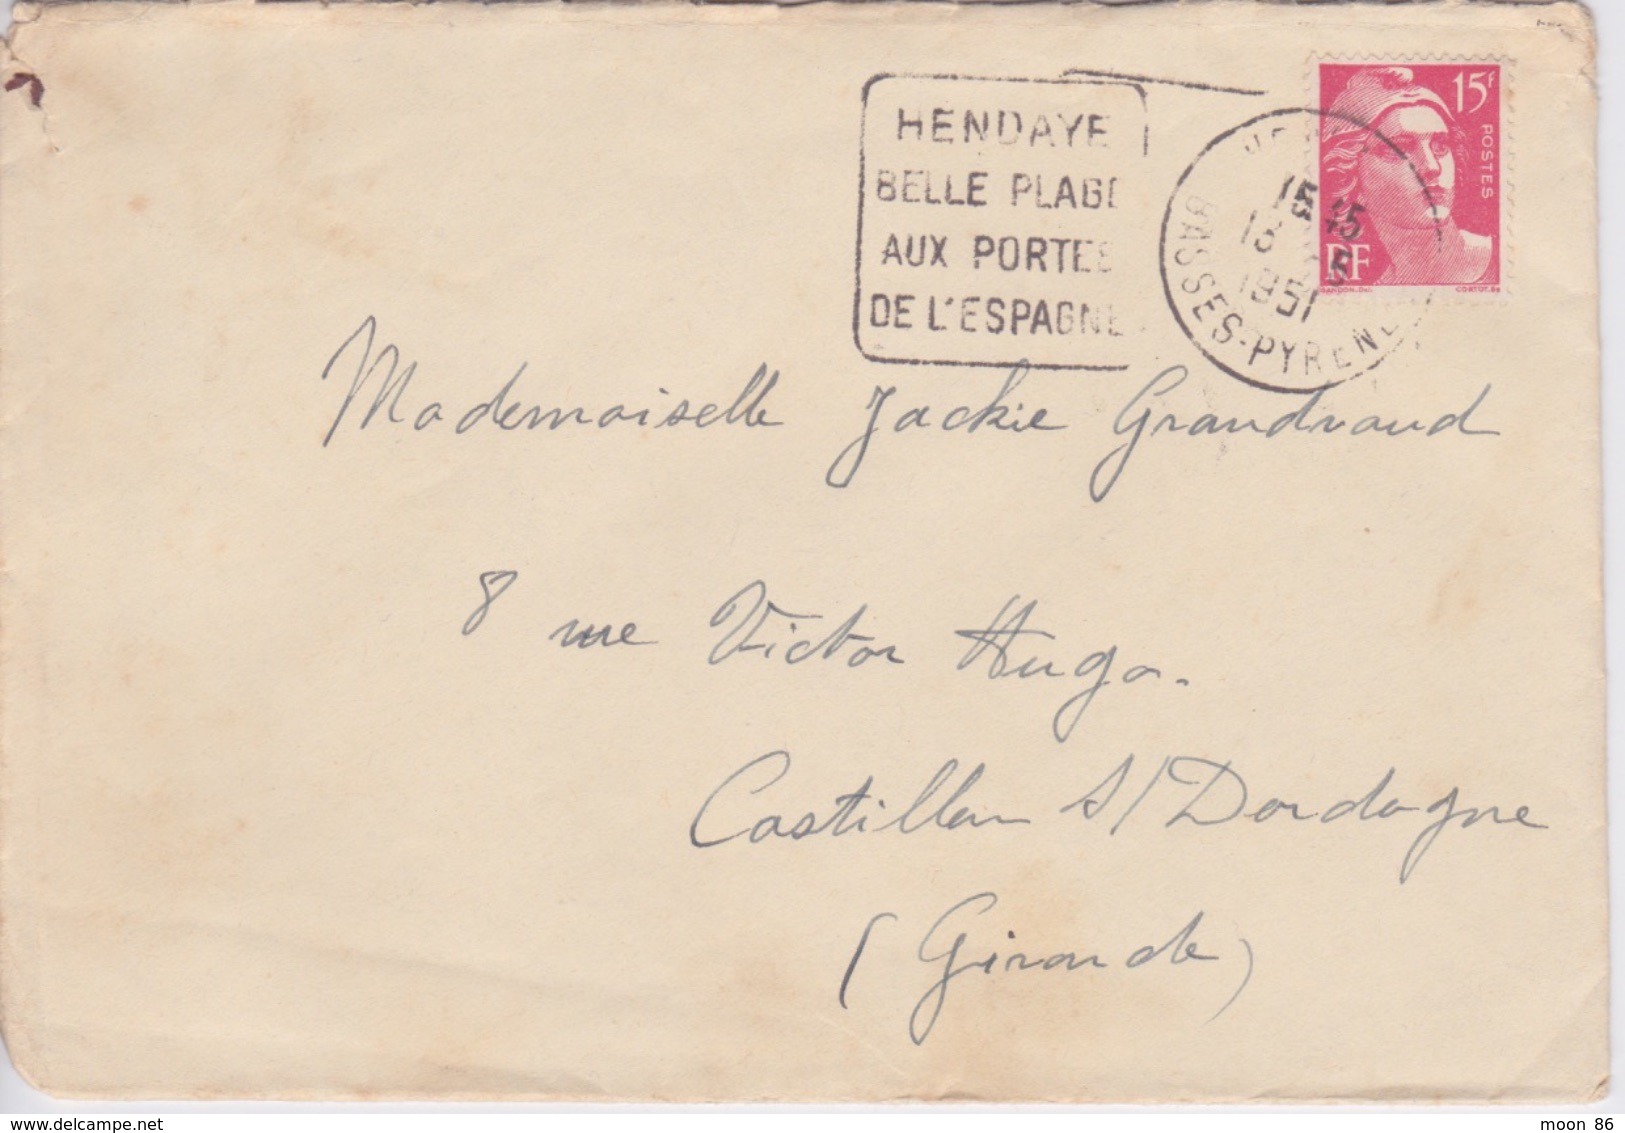 HENDAYE
BELLE PLAGE
AUX PORTES
DE L'ESPAGNE
15 45
15 5
1951
BASSES-PYRENEES
15F
POSTES
RF
GANDON.Del.
CORTOT.sc
Mademoiselle Jackie Grandvaud
8 rue Victor Hugo.
Castillon s/Dordogne
(Gironde)
delcampe.net
moon 86